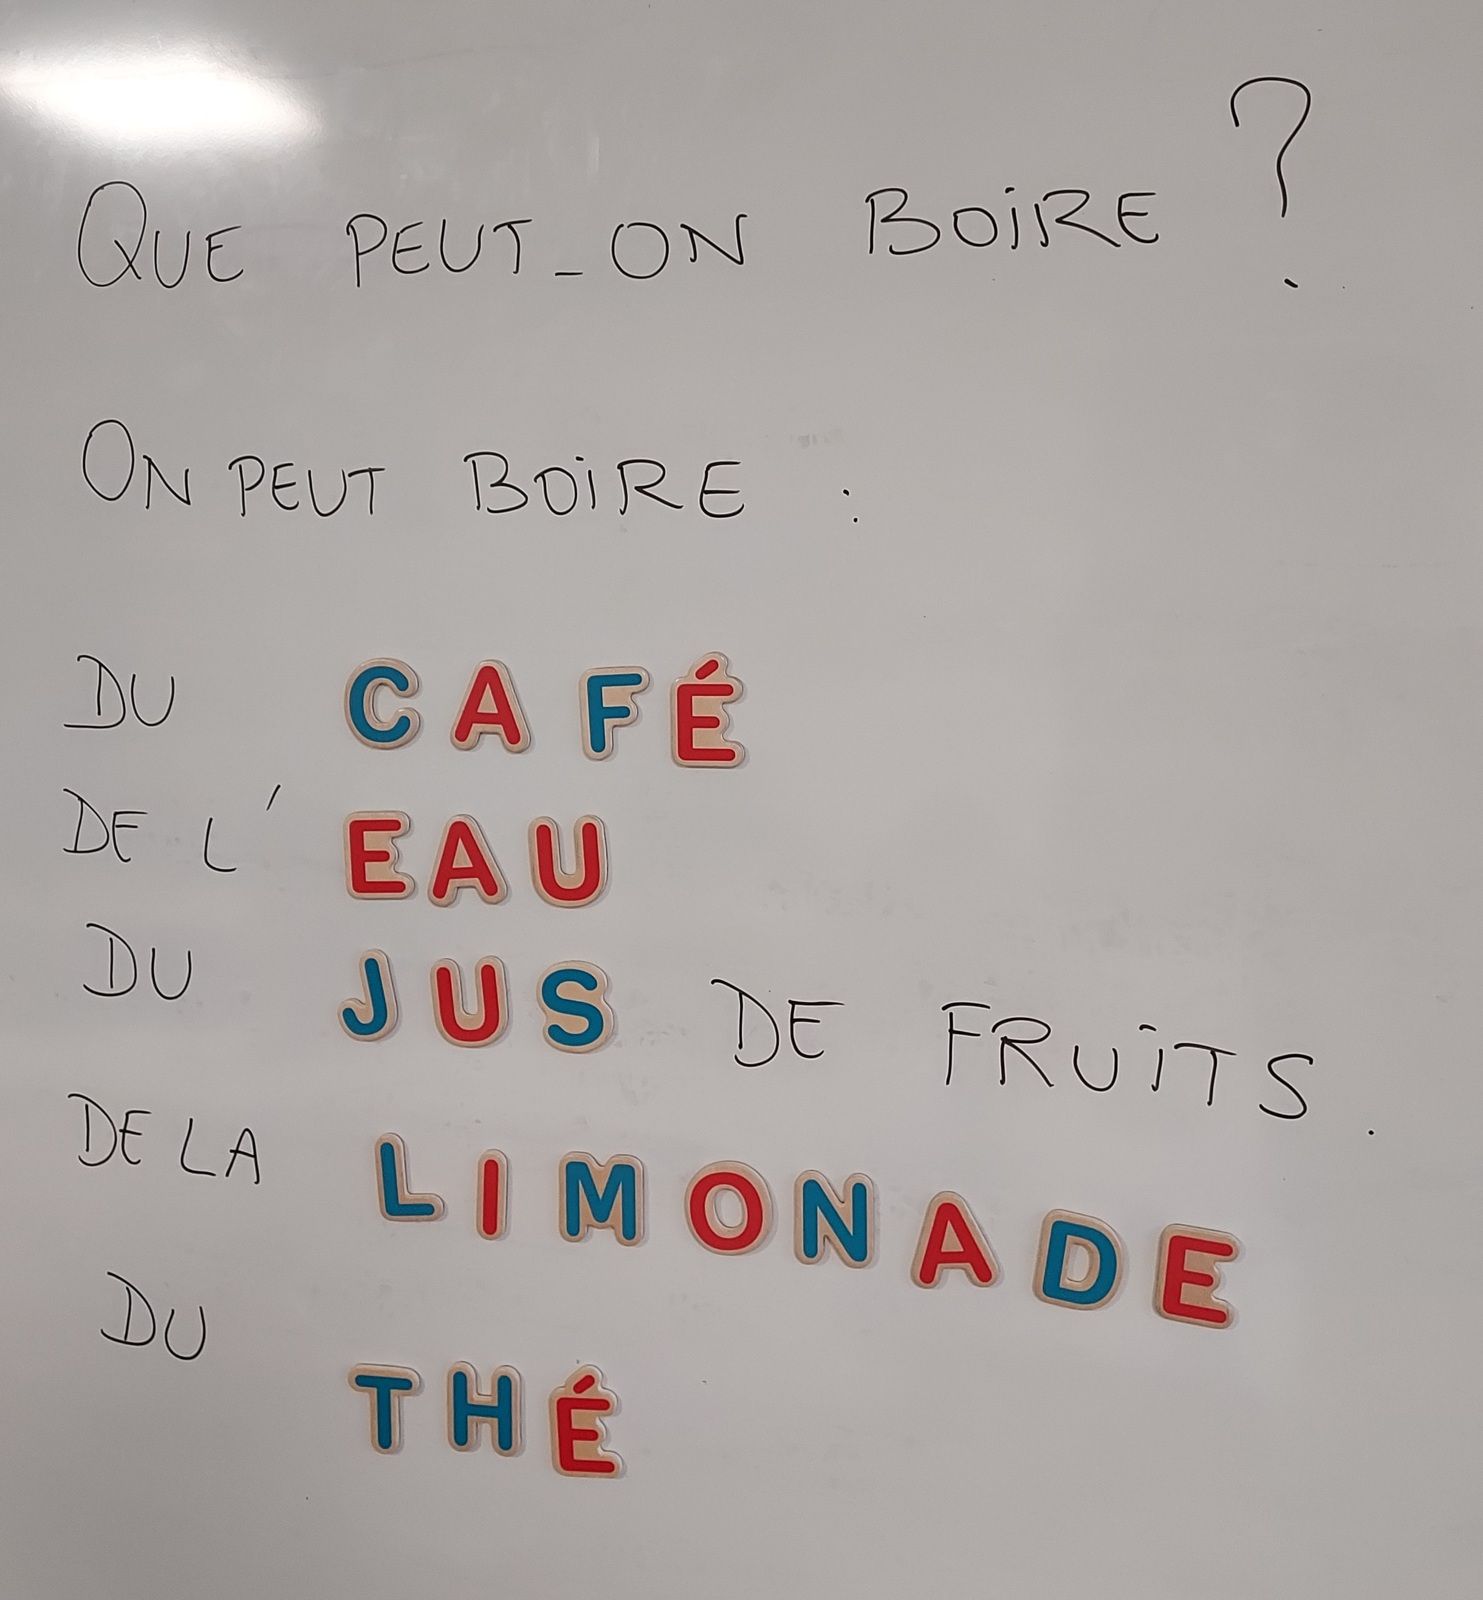 QUE PEUT-ON BOIRE ?
ON PEUT BOIRE :
DU CAFÉ
DE L'EAU
DU JUS DE FRUITS.
DE LA LIMONADE
DU THÉ